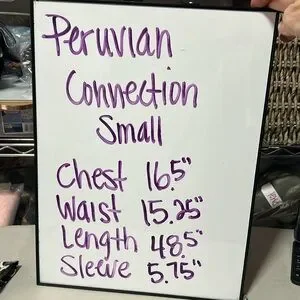 Peruvian
Connection
Small
Chest 16.5"
Waist 15.25"
Length 48.5"
Sleeve 5.75"